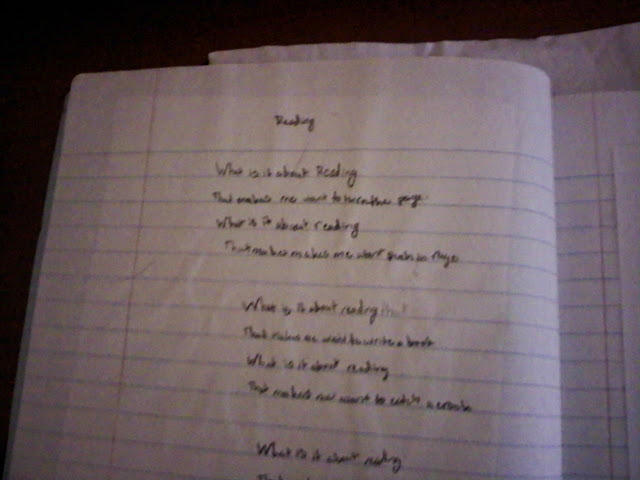 Reading
What is it about Reading
That makes me want to turn the page.
What is it about reading
That makes makes me want in rage
What is it about reading that
That makes me want to write a book
What is it about reading
That makes me want to catch a crook
What is it about reading